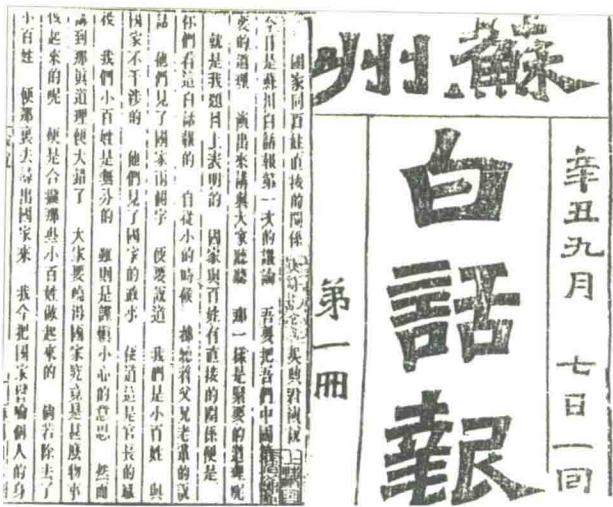 蘇州
辛丑九月 七日一回
白話報
第一冊
國家同百姓直接的關係
今日是蘇州白話報第一次的議論 吾要把吾們中國
要的道理 演出來講與大家聽聽 那一樣是緊要的道理呢
就是我題目上表明的 國家與百姓有直接的關係便是
你們看這白話報的 自從小的時候 聽着父兄老輩的說
話 他們見了國家兩個字 便要說道 我們是小百姓 與
國家不干涉的 他們見了國家的政事 便道這是官長的
我們小百姓是無分的 雖則是謹慎小心的意思 然而
講到那眞道理便大錯了 大家要曉得國家究竟是甚麽物事
起來的呢 便是合攏那些小百姓做起來的 倘若除去了
小百姓 便那裏去尋出國家來 我今把國家譬喻個人的身